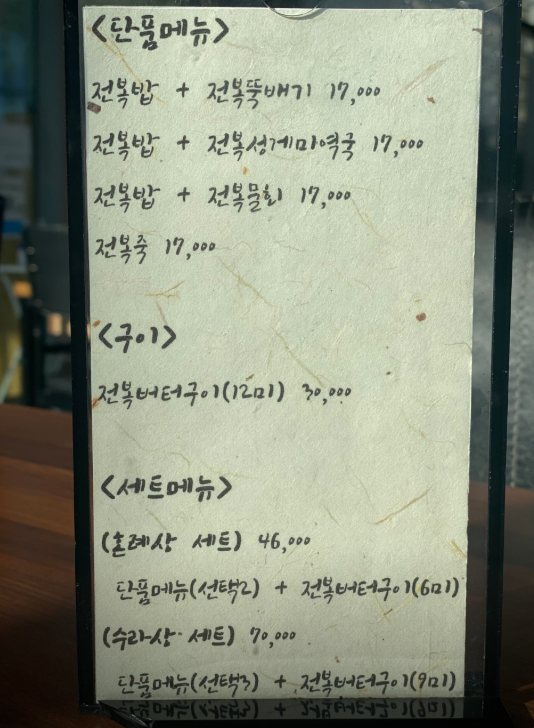 <단품메뉴>
전복밥 + 전복뚝배기 17,000
전복밥 + 전복성게미역국 17,000
전복밥 + 전복물회 17,000
전복죽 17,000
<구이>
전복버터구이(12미) 30,000
<세트메뉴>
(혼례상 세트) 46,000
단품메뉴(선택2) + 전복버터구이(6미)
(수라상 세트) 70,000
단품메뉴(선택3) + 전복버터구이(9미)